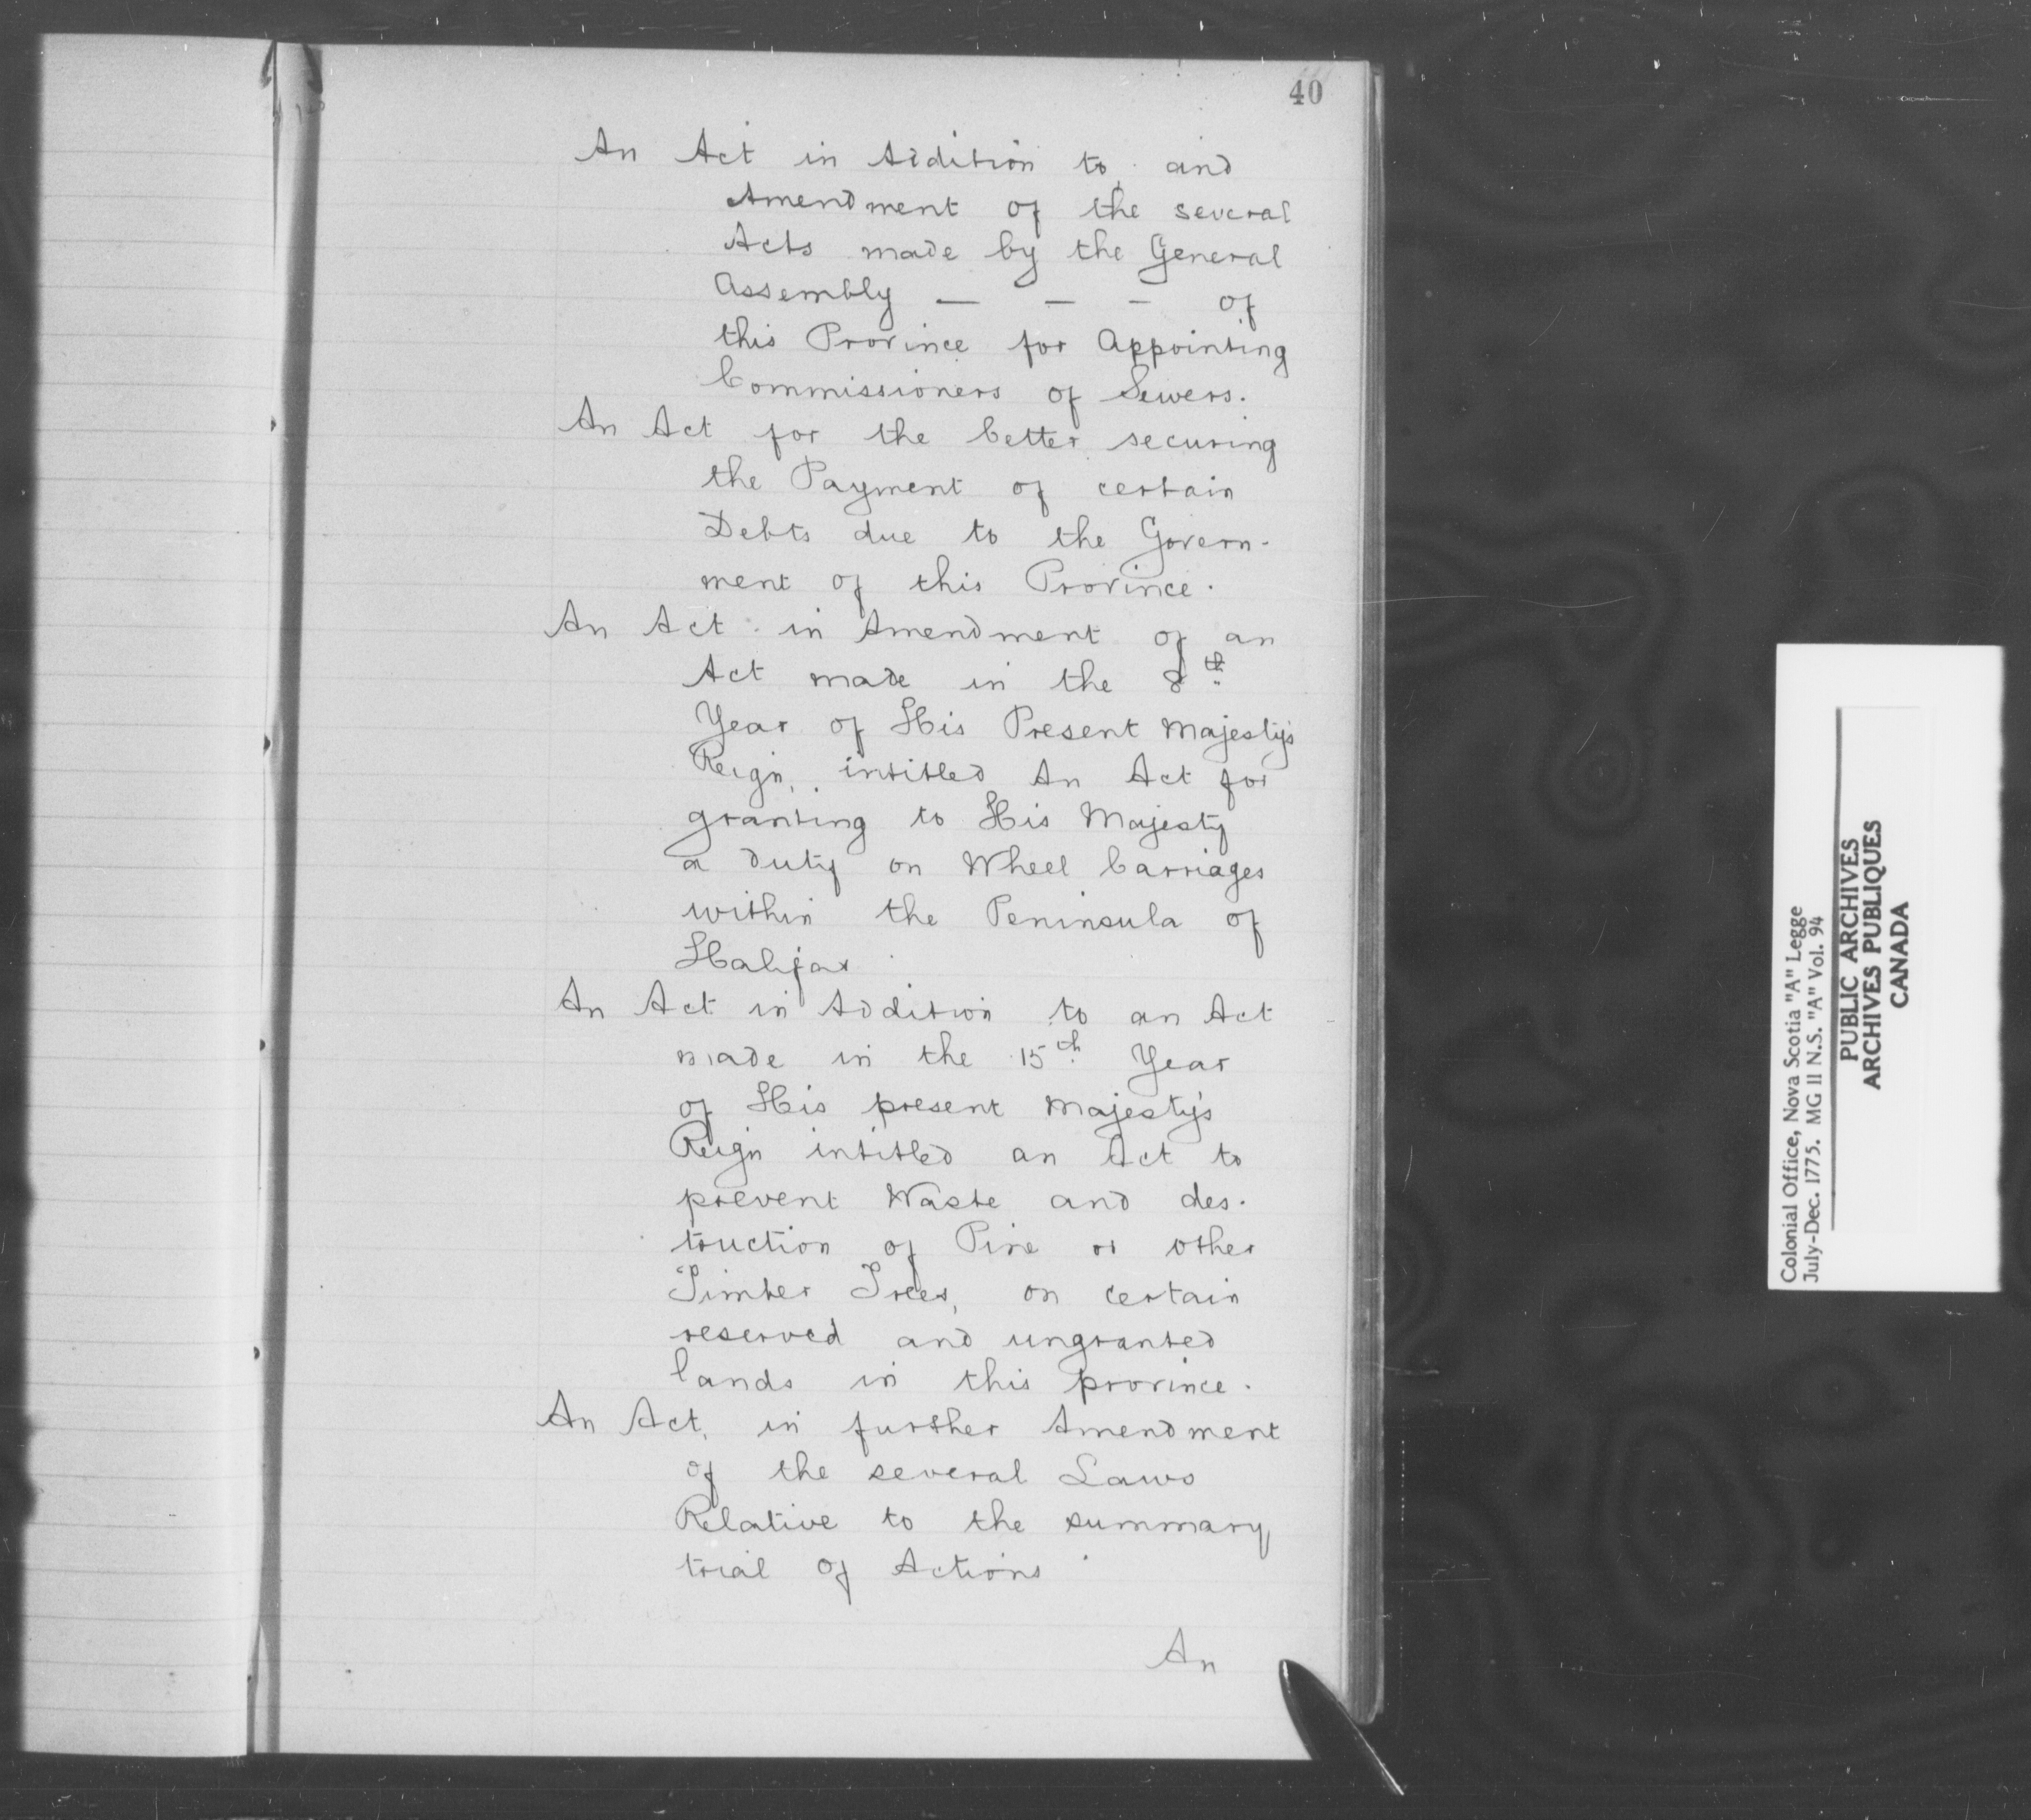 40
An Act in Addition to, and
Amendment of the several
Acts made by the General
Assembly — — — of
this Province for Appointing
Commissioners of Sewers.
An Act for the better securing
the Payment of certain
Debts due to the Govern-
ment of this Province.
An Act in Amendment of an
Act made in the 8th
Year of His Present Majesty's
Reign, intitled An Act for
granting to His Majesty
a duty on Wheel Carriages
within the Peninsula of
Halifax
An Act in Addition to an Act
made in the 15th Year
of His present Majesty's
Reign intitled an Act to
prevent Waste and des-
truction of Pine or other
Timber Trees, on certain
reserved and ungranted
lands in this province.
An Act, in further Amendment
of the several Laws
Relative to the summary
trial of Actions
An
Colonial Office, Nova Scotia "A" Legge
July-Dec. 1775. MG 11 N.S. "A" Vol. 94
PUBLIC ARCHIVES
ARCHIVES PUBLIQUES
CANADA